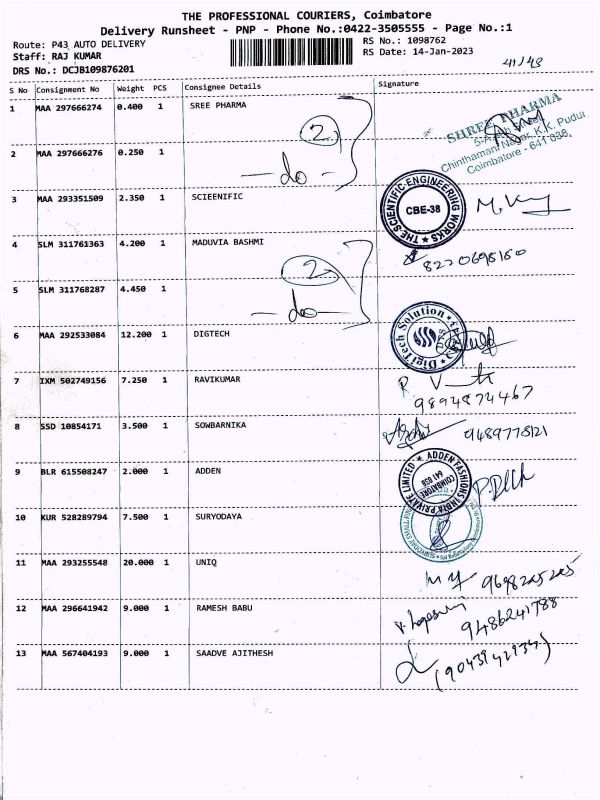 THE PROFESSIONAL COURIERS, Coimbatore
Delivery Runsheet - PNP - Phone No.:0422-3505555 - Page No.:1
Route: P43 AUTO DELIVERY
RS No.: 1098762
Staff: RAJ KUMAR
RS Date: 14-Jan-2023
DRS No.: DCJB109876201
41/48
S No Consignment No Weight PCS Consignee Details Signature
1 MAA 297666274 0.400 1 SREE PHARMA
2
SHREE PHARMA
Chinthamani Nagar, K.K. Pudur
Coimbatore - 641 038.
2 MAA 297666276 0.250 1
— do —
3 MAA 293351509 2.350 1 SCIEENIFIC
THE SCIENTIFIC ENGINEERING WORKS
CBE-38
4 SLM 311761363 4.200 1 MADUVIA BASHMI
2
8220698160
5 SLM 311768287 4.450 1
— do —
6 MAA 292533084 12.200 1 DIGTECH
DigiTech Solution
7 IXM 502749156 7.250 1 RAVIKUMAR
9894874467
8 SSD 10854171 3.500 1 SOWBARNIKA
9489778121
9 BLR 615508247 2.000 1 ADDEN
ADDEN FASHIONS INDIA PRIVATE LIMITED
COIMBATORE
641 038
10 KUR 528289794 7.500 1 SURYODAYA
11 MAA 293255548 20.000 1 UNIQ
9698225225
12 MAA 296641942 9.000 1 RAMESH BABU
9486241788
13 MAA 567404193 9.000 1 SAADVE AJITHESH
(9043942934)